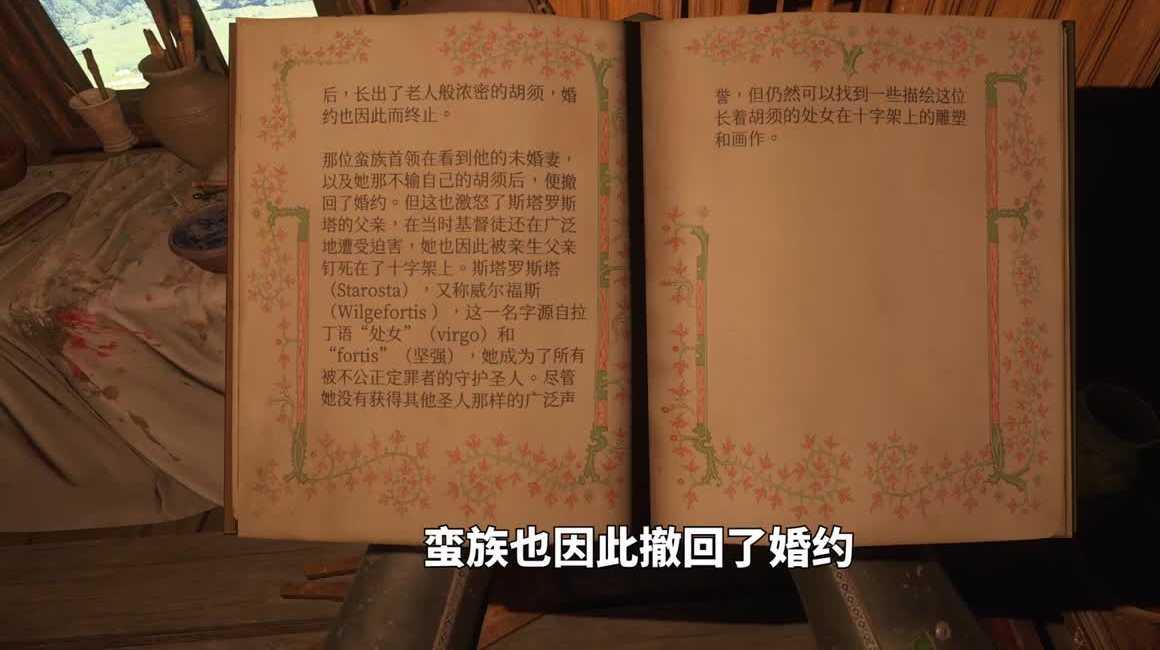 后，长出了老人般浓密的胡须，婚
约也因此而终止。
那位蛮族首领在看到他的未婚妻，
以及她那不输自己的胡须后，便撤
回了婚约。但这也激怒了斯塔罗斯
塔的父亲，在当时基督徒还在广泛
地遭受迫害，她也因此被亲生父亲
钉死在了十字架上。斯塔罗斯塔
（Starosta），又称威尔福斯
（Wilgefortis ），这一名字源自拉
丁语“处女”（virgo）和
“fortis”（坚强），她成为了所有
被不公正定罪者的守护圣人。尽管
她没有获得其他圣人那样的广泛声
誉，但仍然可以找到一些描绘这位
长着胡须的处女在十字架上的雕塑
和画作。
蛮族也因此撤回了婚约